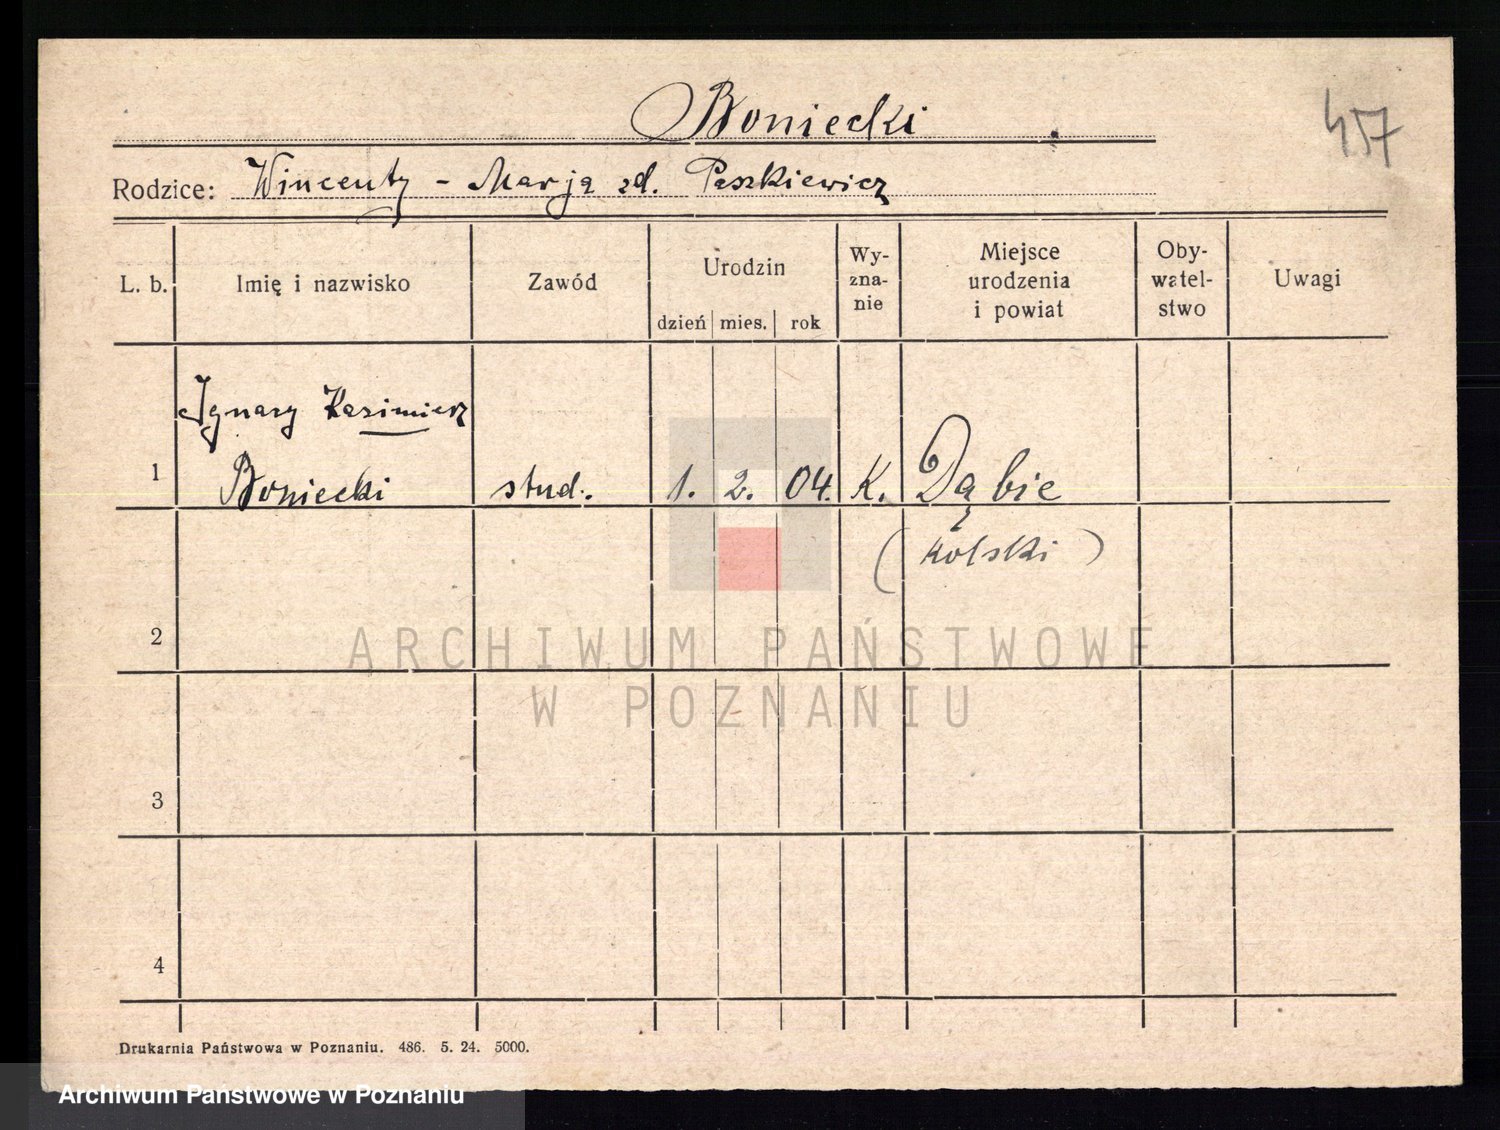 Boniecki
457
Rodzice: Wincenty - Marja zd. Paszkiewicz
L. b.
Imię i nazwisko
Zawód
Urodzin
dzień mies. rok
Wy-
zna-
nie
Miejsce
urodzenia
i powiat
Oby-
watel-
stwo
Uwagi
Ignacy Kazimierz
1 Boniecki stud. 1. 2. 04. K. Dąbie
(kolski)
2
ARCHIWUM PAŃSTWOWE
W POZNANIU
3
4
Drukarnia Państwowa w Poznaniu. 486. 5. 24. 5000.
Archiwum Państwowe w Poznaniu